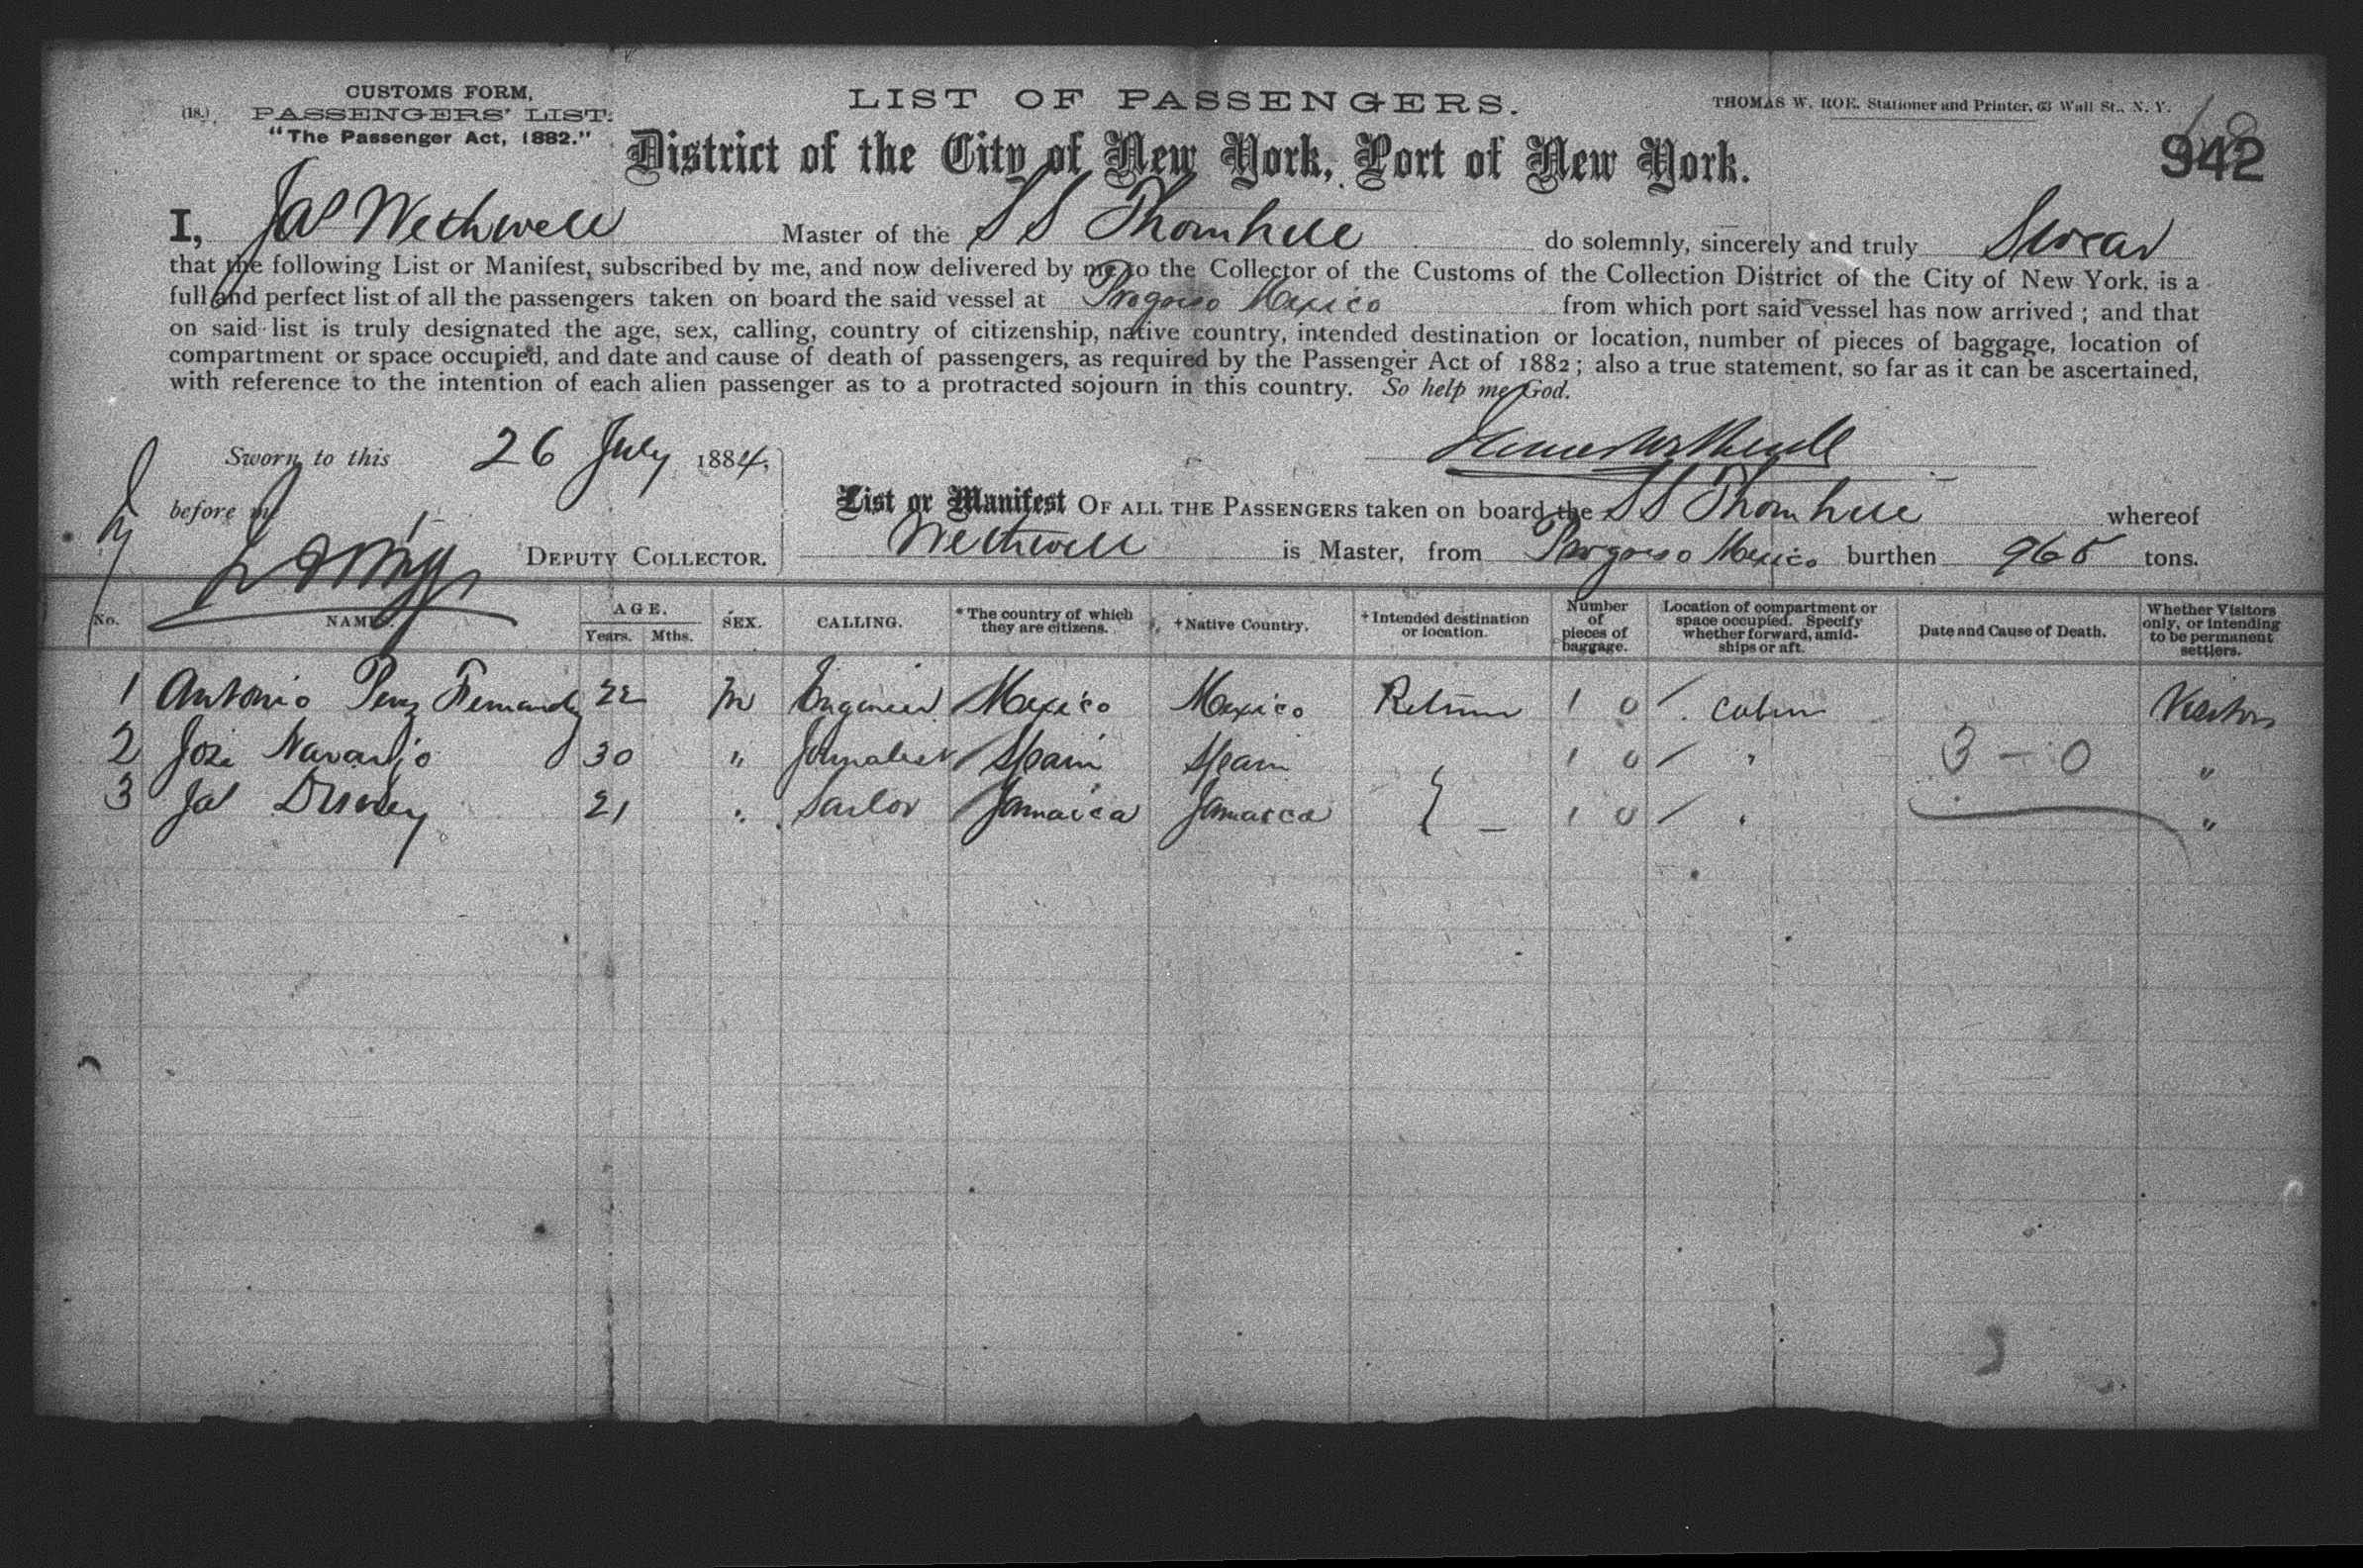 CUSTOMS FORM,
(18.) PASSENGERS' LIST.
"The Passenger Act, 1882."
LIST OF PASSENGERS.
THOMAS W. ROE, Stationer and Printer, 63 Wall St., N. Y.
942
District of the City of New York, Port of New York.
I, Jas Wethwell Master of the SS Thornhill do solemnly, sincerely and truly Swear
that the following List or Manifest, subscribed by me, and now delivered by me to the Collector of the Customs of the Collection District of the City of New York, is a
full and perfect list of all the passengers taken on board the said vessel at Progreso Mexico from which port said vessel has now arrived; and that
on said list is truly designated the age, sex, calling, country of citizenship, native country, intended destination or location, number of pieces of baggage, location of
compartment or space occupied, and date and cause of death of passengers, as required by the Passenger Act of 1882; also a true statement, so far as it can be ascertained,
with reference to the intention of each alien passenger as to a protracted sojourn in this country. So help me God.
Sworn to this 26 July 1884,
before me
DEPUTY COLLECTOR.
List or Manifest OF ALL THE PASSENGERS taken on board the SS Thornhill whereof
Wethwell is Master, from Progreso Mexico burthen 965 tons.
No. NAMES. AGE. Years. Mths. SEX. CALLING. *The country of which they are citizens. +Native Country. +Intended destination or location. Number of pieces of baggage. Location of compartment or space occupied. Specify whether forward, amidships or aft. Date and Cause of Death. Whether Visitors only, or intending to be permanent settlers.
1 Antonio Perez Fernandez 22 M Engineer Mexico Mexico Return 1 0 / Cabin Visitors
2 Jose Navarijo 30 " Journalist Spain Spain 1 0 / " 3 - 0 "
3 Jas 21 " Sailor Jamaica Jamaica - 1 0 / " "